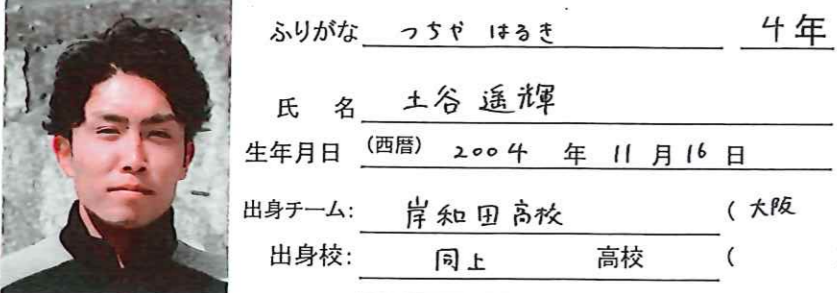 ふりがな つちや はるき 4年
氏 名 土谷 遥輝
生年月日 (西暦) 2004 年 11 月 16 日
出身チーム: 岸和田高校 ( 大阪
出身校: 同上 高校 (